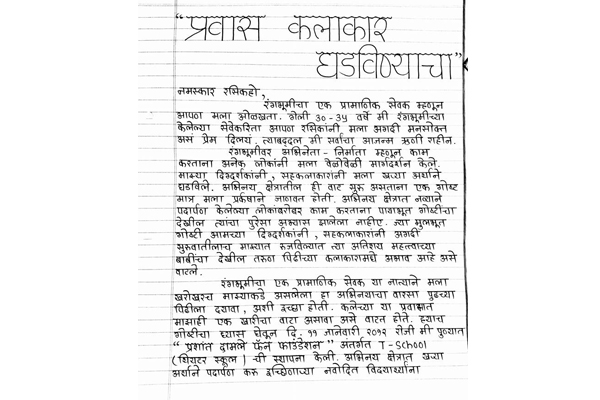 “प्रवास कलाकार
घडविण्याचा”
नमस्कार रसिकहो,
रंगभूमीचा एक प्रामाणिक सेवक म्हणून
आपण मला ओळखता. गेली 30-35 वर्षे मी रंगभूमीच्या
केलेल्या सेवेकरिता आपण रसिकांनी मला अगदी मनसोक्त
असं प्रेम दिलयं. त्याबद्दल मी सर्वांचा आजन्म ऋणी राहीन.
रंगभूमीवर अभिनेता - निर्माता म्हणून काम
करताना अनेक लोकांनी मला वेळोवेळी मार्गदर्शन केले.
माझ्या दिग्दर्शकांनी, सहकलाकारांनी मला खर्‍या अर्थाने
घडविले. अभिनय क्षेत्रातील ही वाट सुरू असताना एक गोष्ट
मात्र मला प्रकर्षाने जाणवत होती. अभिनय क्षेत्रात नव्याने
पदार्पण केलेल्या लोकांबरोबर काम करताना पायाभूत गोष्टींचा
देखील त्यांचा पुरेसा अभ्यास झालेला नाहीए. ज्या मुलभूत
गोष्टी आमच्या दिग्दर्शकांनी, सहकलाकारांनी अगदी
सुरुवातीलाच माझ्यात रुजविल्यात त्या अतिशय महत्त्वाच्या
बाबींचा देखील तरुण पिढीच्या कलाकारामध्ये अभाव आहे असे
वाटले.
रंगभूमीचा एक प्रामाणिक सेवक या नात्याने मला
खरोखरच माझ्याकडे असलेला हा अभिनयाचा वारसा पुढच्या
पिढीला द्यावा, अशी इच्छा होती. कलेच्या या प्रवासात
माझाही एक खारीचा वाटा असावा असे वाटत होते. ह्याच
गोष्टीचा ध्यास घेवून दि. ११ जानेवारी २०१२ रोजी मी पुण्यात
“प्रशांत दामले फॅन फाउंडेशन” अंतर्गत T-School
(थिएटर स्कूल) ची स्थापना केली. अभिनय क्षेत्रात खर्‍या
अर्थाने पदार्पण करू इच्छिणाच्या नवोदित विद्यार्थ्यांना